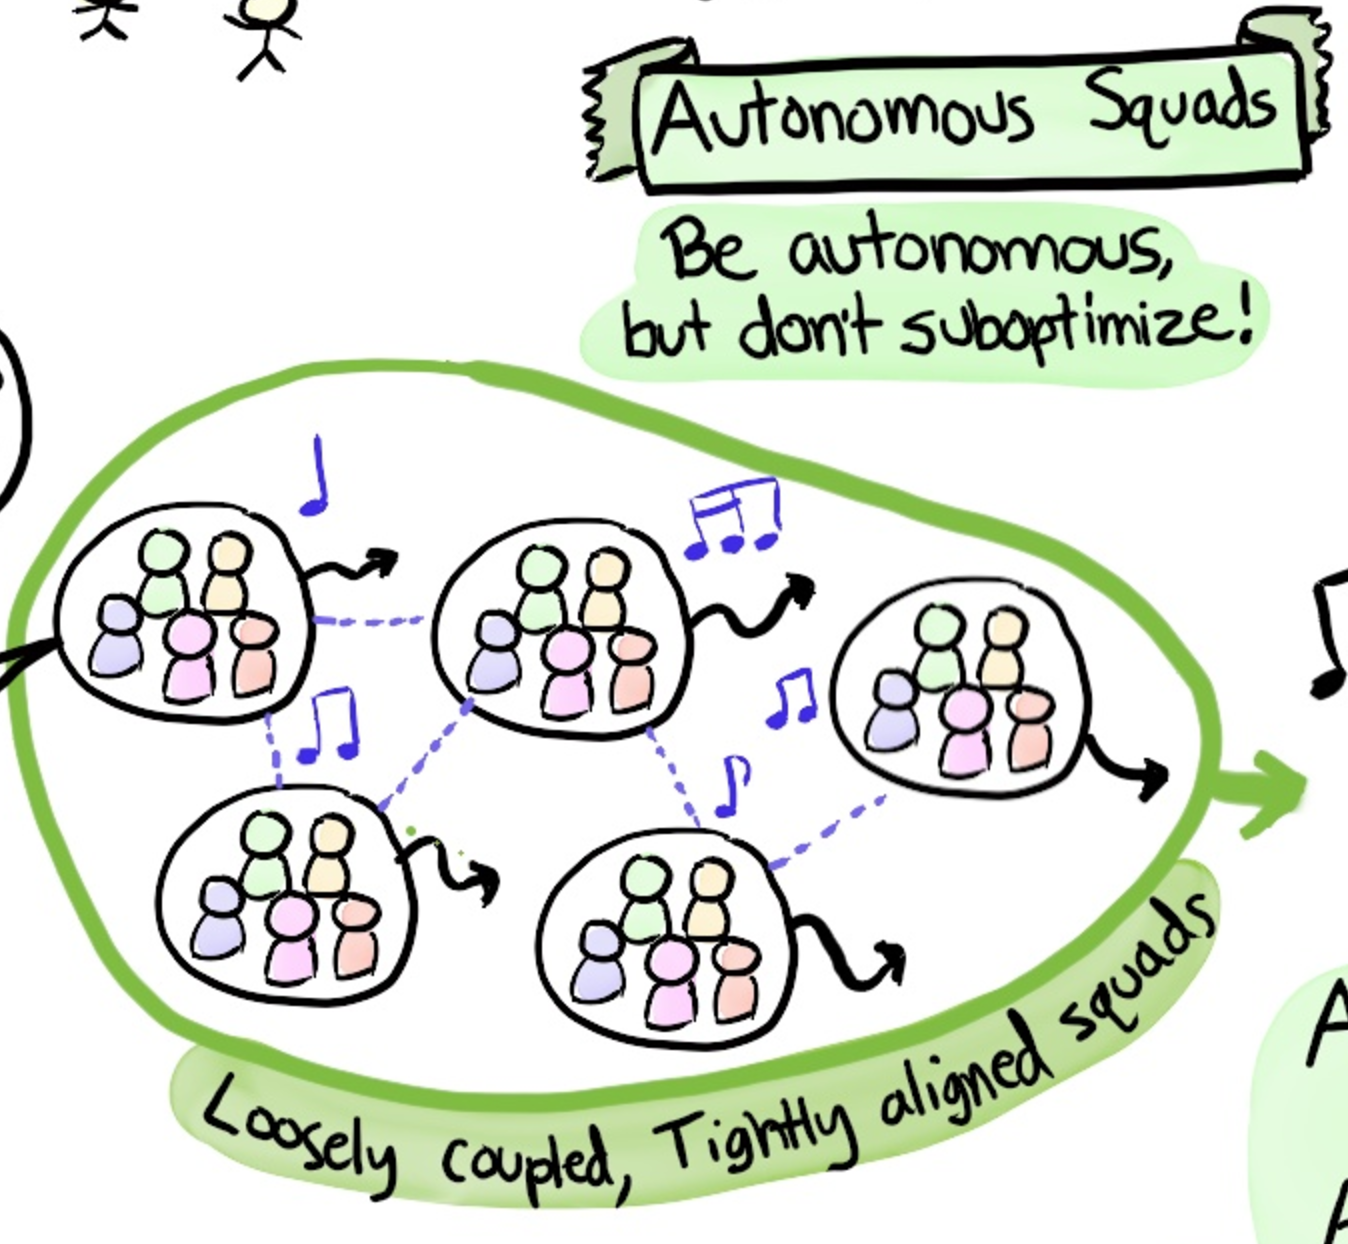 Autonomous Squads
Be autonomous,
but don't suboptimize!
Loosely coupled, Tightly aligned squads
A
A